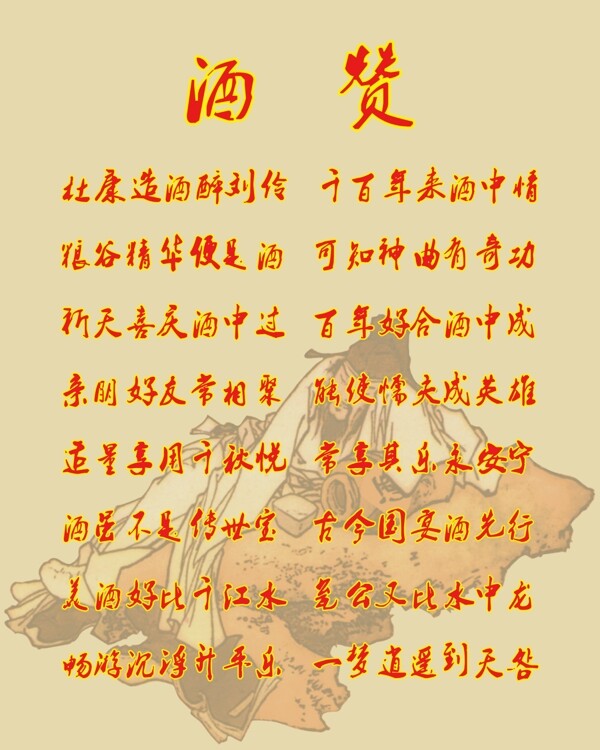 酒 赞
杜康造酒醉刘伶 千百年来酒中情
粮谷精华便是酒 可知神曲有奇功
祈天喜庆酒中过 百年好合酒中成
亲朋好友常相聚 能使懦夫成英雄
适量享用千秋悦 常享其乐永安宁
酒虽不是传世宝 古今国宴酒先行
美酒好比千江水 尧公又比水中龙
畅游沉浮升平乐 一梦逍遥到天